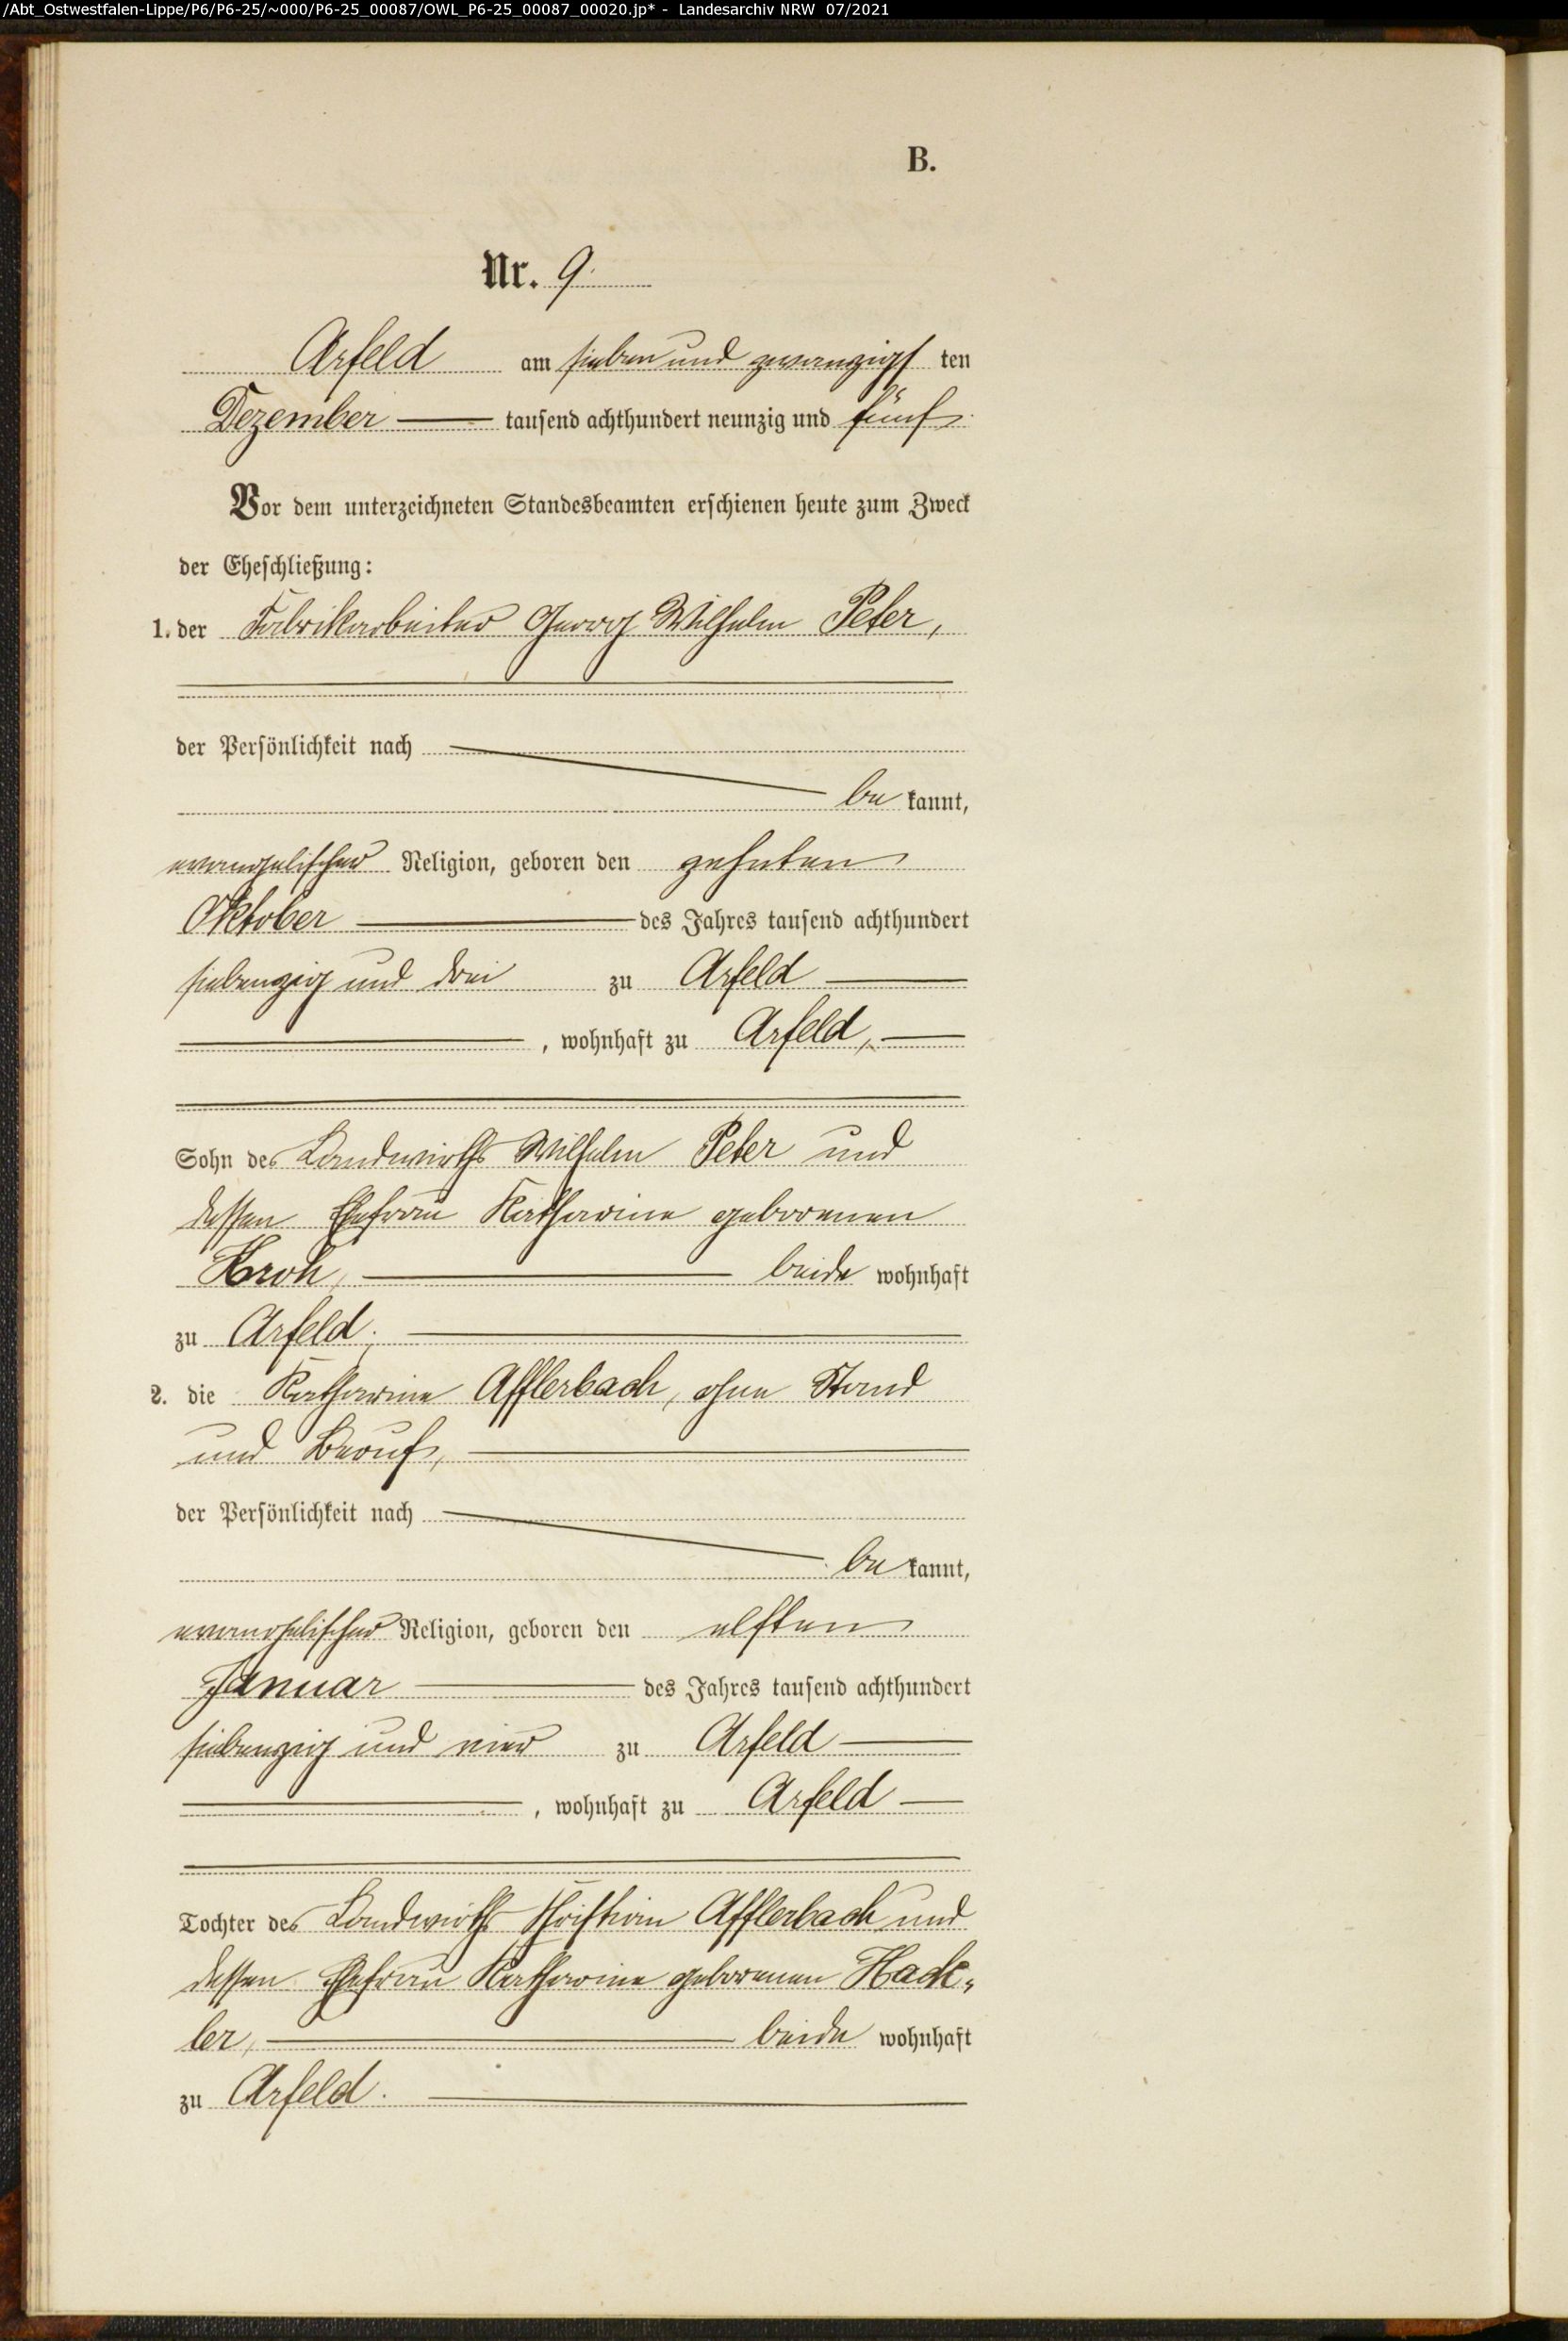 /Abt_Ostwestfalen-Lippe/P6/P6-25/~000/P6-25_00087/OWL_P6-25_00087_00020.jp* - Landesarchiv NRW 07/2021
B.
Nr. 9.
Arfeld am sieben und zwanzigsten
Dezember tausend achthundert neunzig und fünf.
Vor dem unterzeichneten Standesbeamten erschienen heute zum Zweck
der Eheschließung:
1. der Fabrikarbeiter Georg Wilhelm Peter,
der Persönlichkeit nach
be kannt,
evangelischer Religion, geboren den zehnten
Oktober des Jahres tausend achthundert
siebenzig und drei zu Arfeld
, wohnhaft zu Arfeld,
Sohn des Landwirths Wilhelm Peter und
dessen Ehefrau Katharine geborenen
Kroh, beide wohnhaft
zu Arfeld;
2. die Katharine Afflerbach, ohne Stand
und Beruf,
der Persönlichkeit nach
be kannt,
evangelischer Religion, geboren den elften
Januar des Jahres tausend achthundert
siebenzig und vier zu Arfeld
, wohnhaft zu Arfeld
Tochter des Landwirths Christian Afflerbach und
dessen Ehefrau Katharine geborenen Hack-
ler, beide wohnhaft
zu Arfeld.